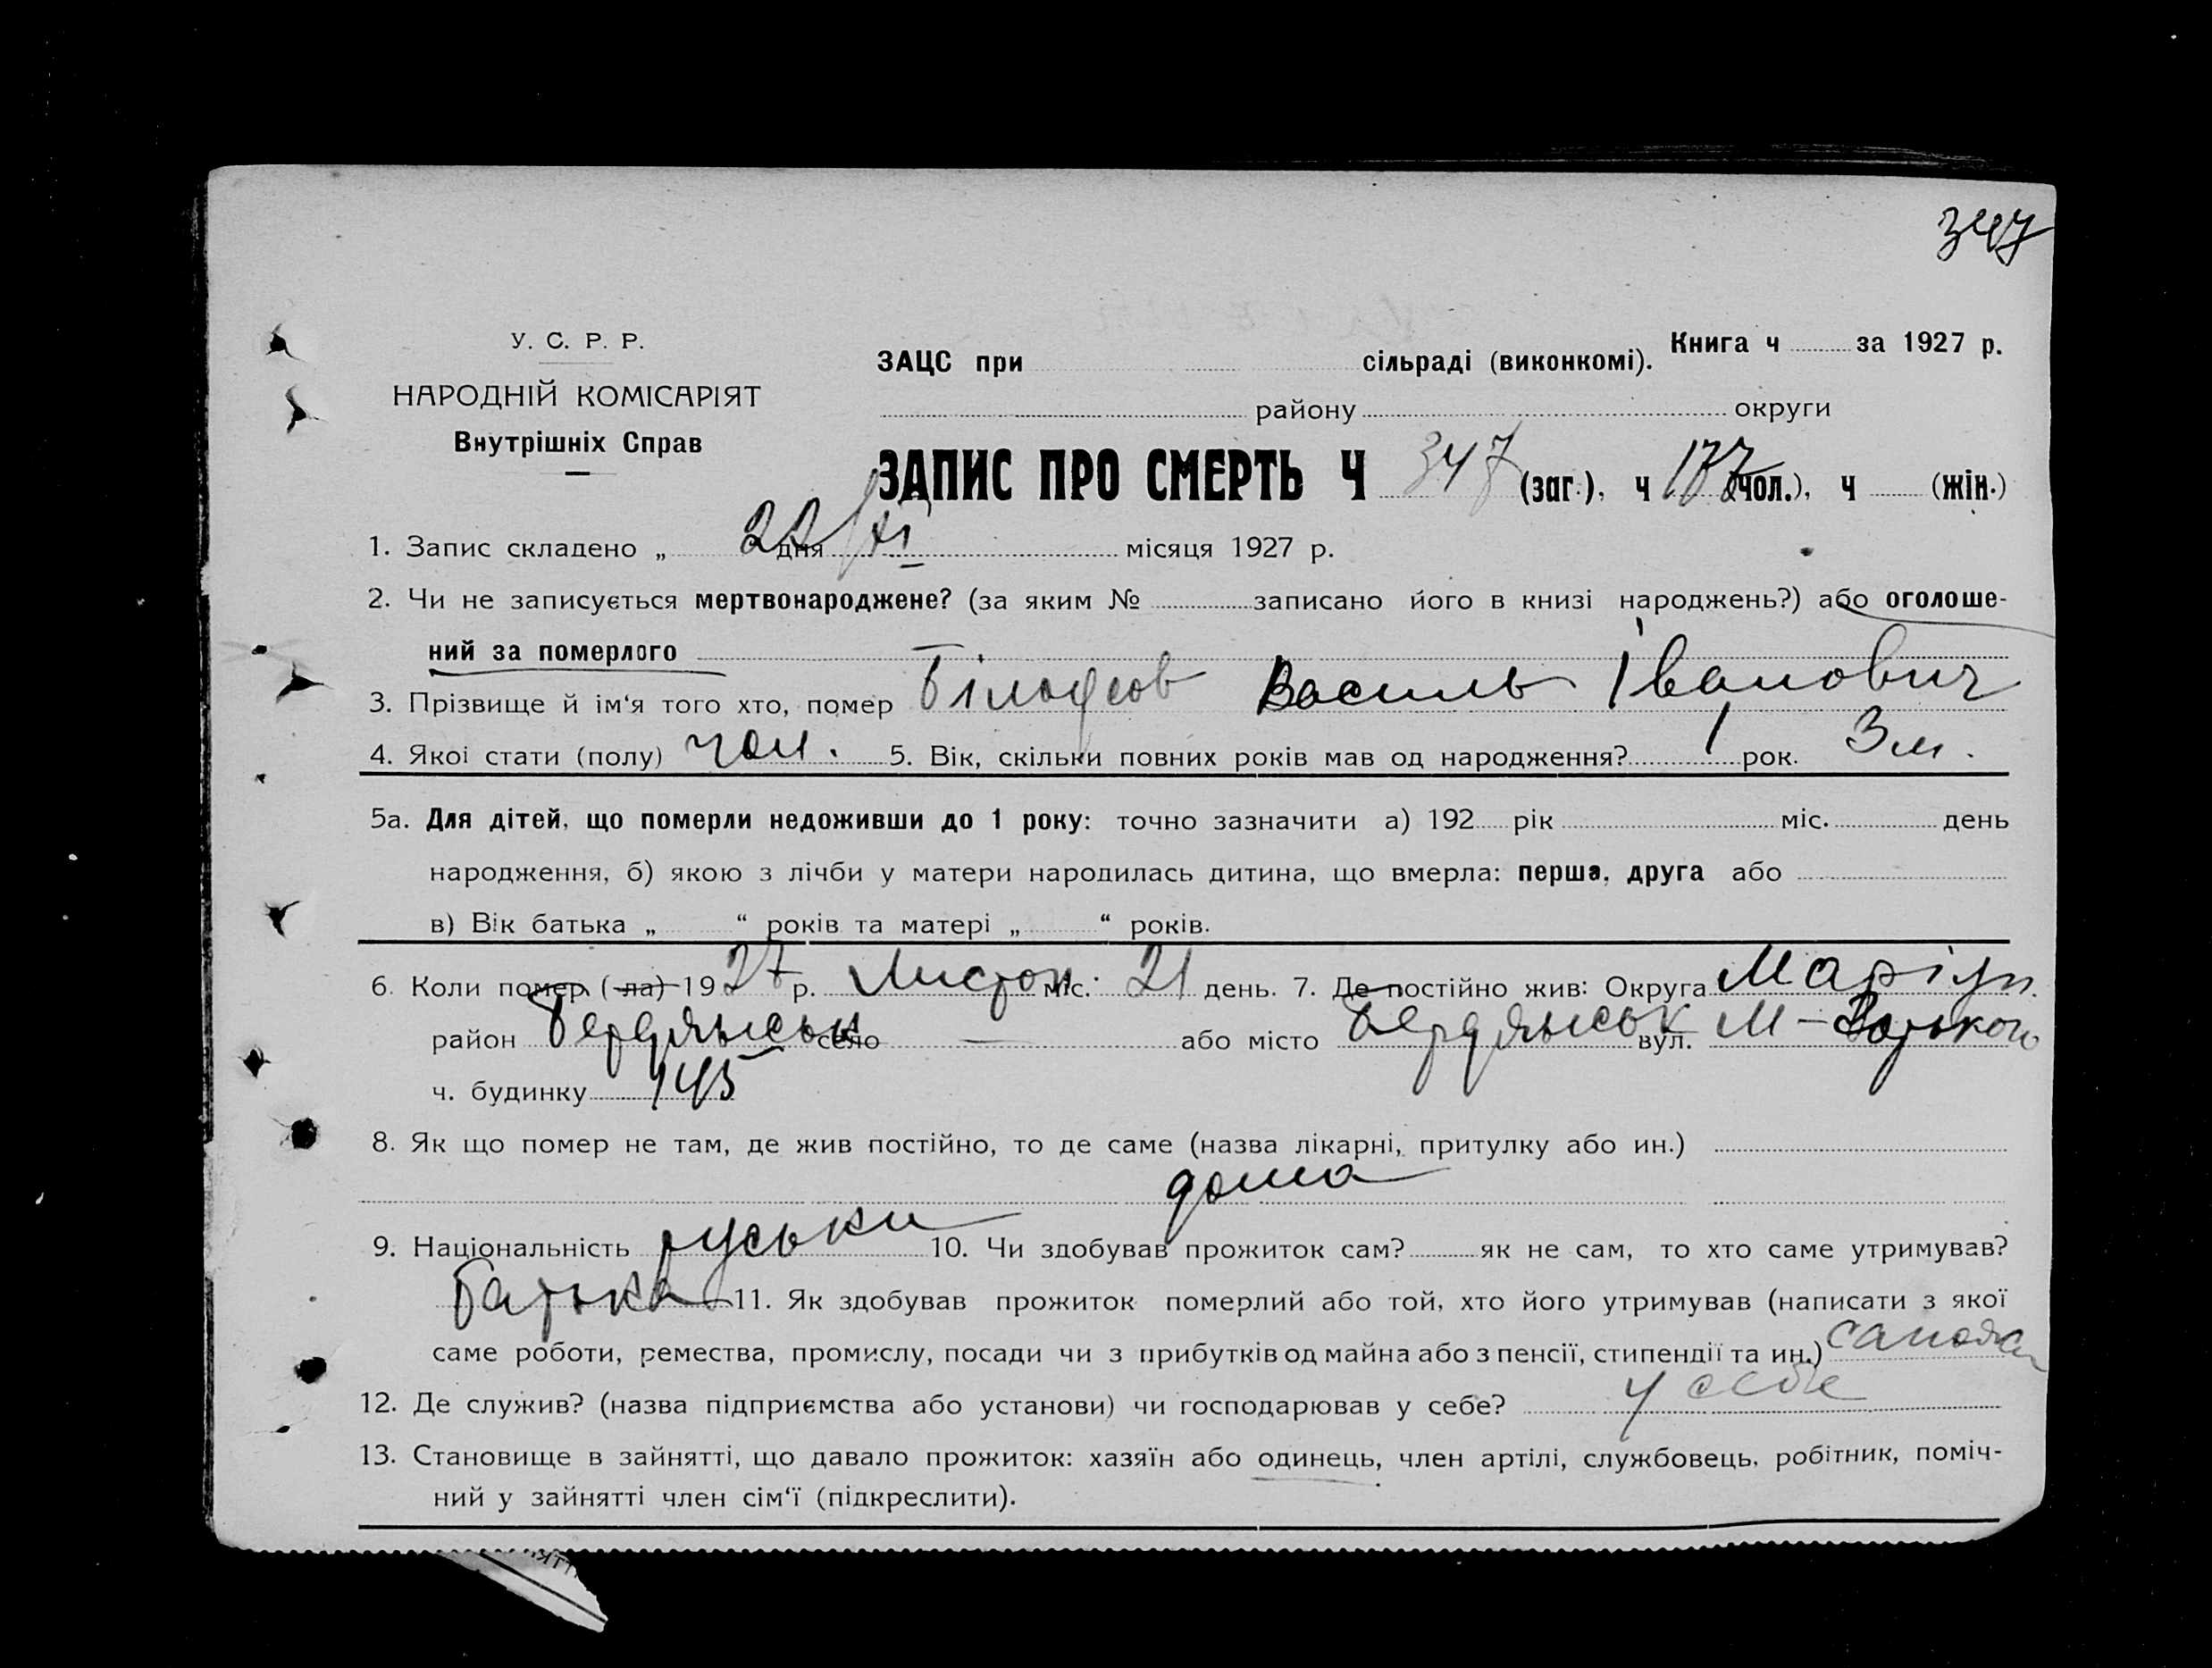 347
У. С. Р. Р.
НАРОДНІЙ КОМІСАРІЯТ
Внутрішніх Справ
ЗАЦС при сільраді (виконкомі). Книга ч за 1927 р.
району округи
ЗАПИС ПРО СМЕРТЬ Ч 347 (заг.), ч 177 (чол.), ч (жін.)
1. Запис складено „ 22 дня XI місяця 1927 р.
2. Чи не записується мертвонароджене? (за яким № записано його в книзі народжень?) або оголоше-
ний за померлого
3. Прізвище й ім‘я того хто, помер Василь Іванович
4. Якоі стати (полу) чол. 5. Вік, скільки повних років мав од народження? 1 рок. 3 м.
5а. Для дітей, що померли недоживши до 1 року: точно зазначити а) 192 рік міс. день
народження, б) якою з лічби у матери народилась дитина, що вмерла: перша, друга або
в) Вік батька „ “ років та матері „ “ років.
6. Коли помер (-ла) 1927 р. Листоп. міс. 21 день. 7. Де постійно жив: Округа Маріуп.
район Бердянськ село — або місто Бердянськ вул.
ч. будинку 145
8. Як що помер не там, де жив постійно, то де саме (назва лікарні, притулку або ин.)
дома
9. Національність руськи 10. Чи здобував прожиток сам? як не сам, то хто саме утримував?
батько 11. Як здобував прожиток померлий або той, хто його утримував (написати з якої
саме роботи, ремества, промислу, посади чи з прибутків од майна або з пенсії, стипендії та ин.)
12. Де служив? (назва підприємства або установи) чи господарював у себе? у себе
13. Становище в зайнятті, що давало прожиток: хазяїн або одинець, член артілі, службовець, робітник, поміч-
ний у зайнятті член сім‘ї (підкреслити).